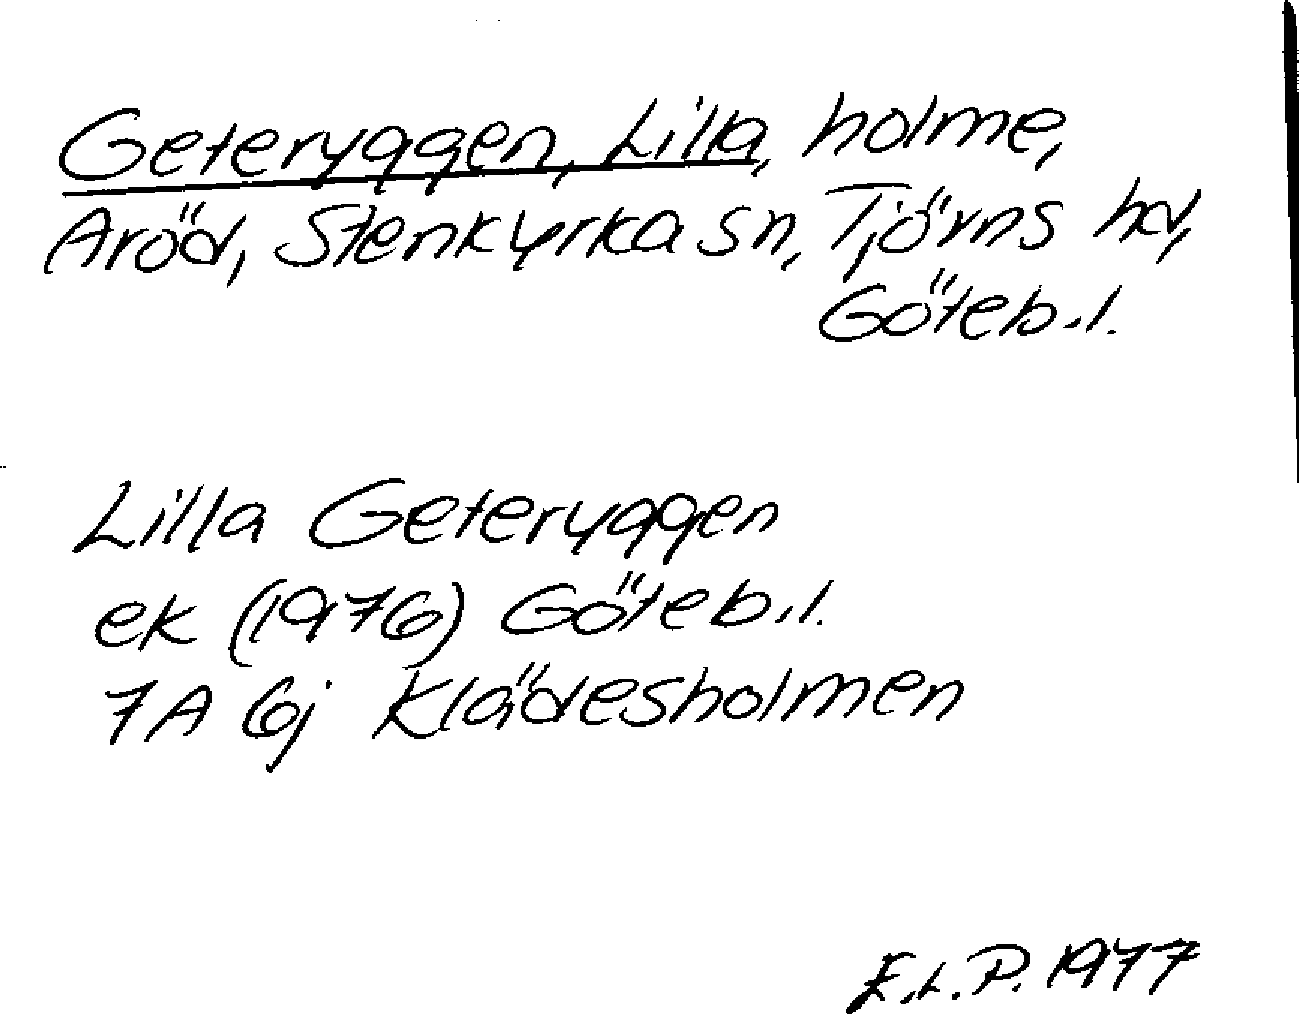 Geteryggen, Lilla, holme,
Aröd, Stenkyrka sn, Tjörns hd,
Göteb.l.
Lilla Geteryggen
ek (1976) Göteb.l.
7A 6j Klädesholmen
E.L.P. 1977